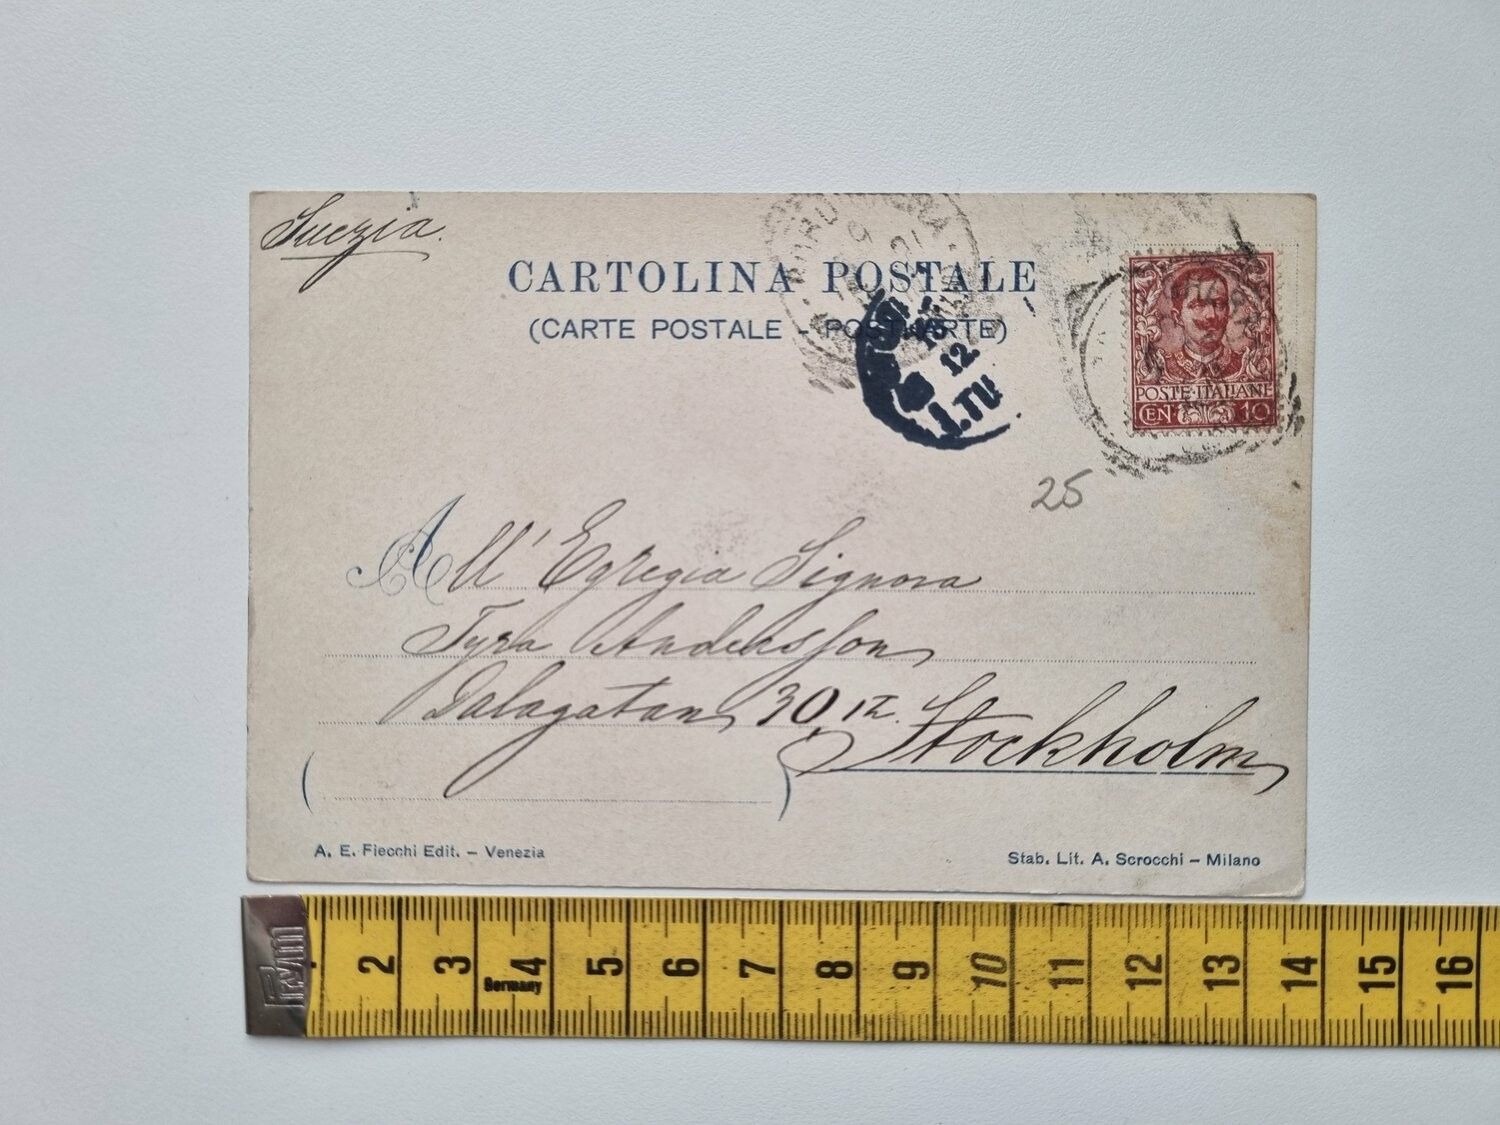 Suezia.
CARTOLINA POSTALE
(CARTE POSTALE - POSTKARTE)
12
1.TU
POSTE·ITALIANE
CEN 10
25
All' Egregia Signora
Tyra Andersson
Dalagatan 30
Stockholm
A. E. Fiecchi Edit. – Venezia
Stab. Lit. A. Scrocchi – Milano
PRYM
Germany
2 3 4 5 6 7 8 9 10 11 12 13 14 15 16